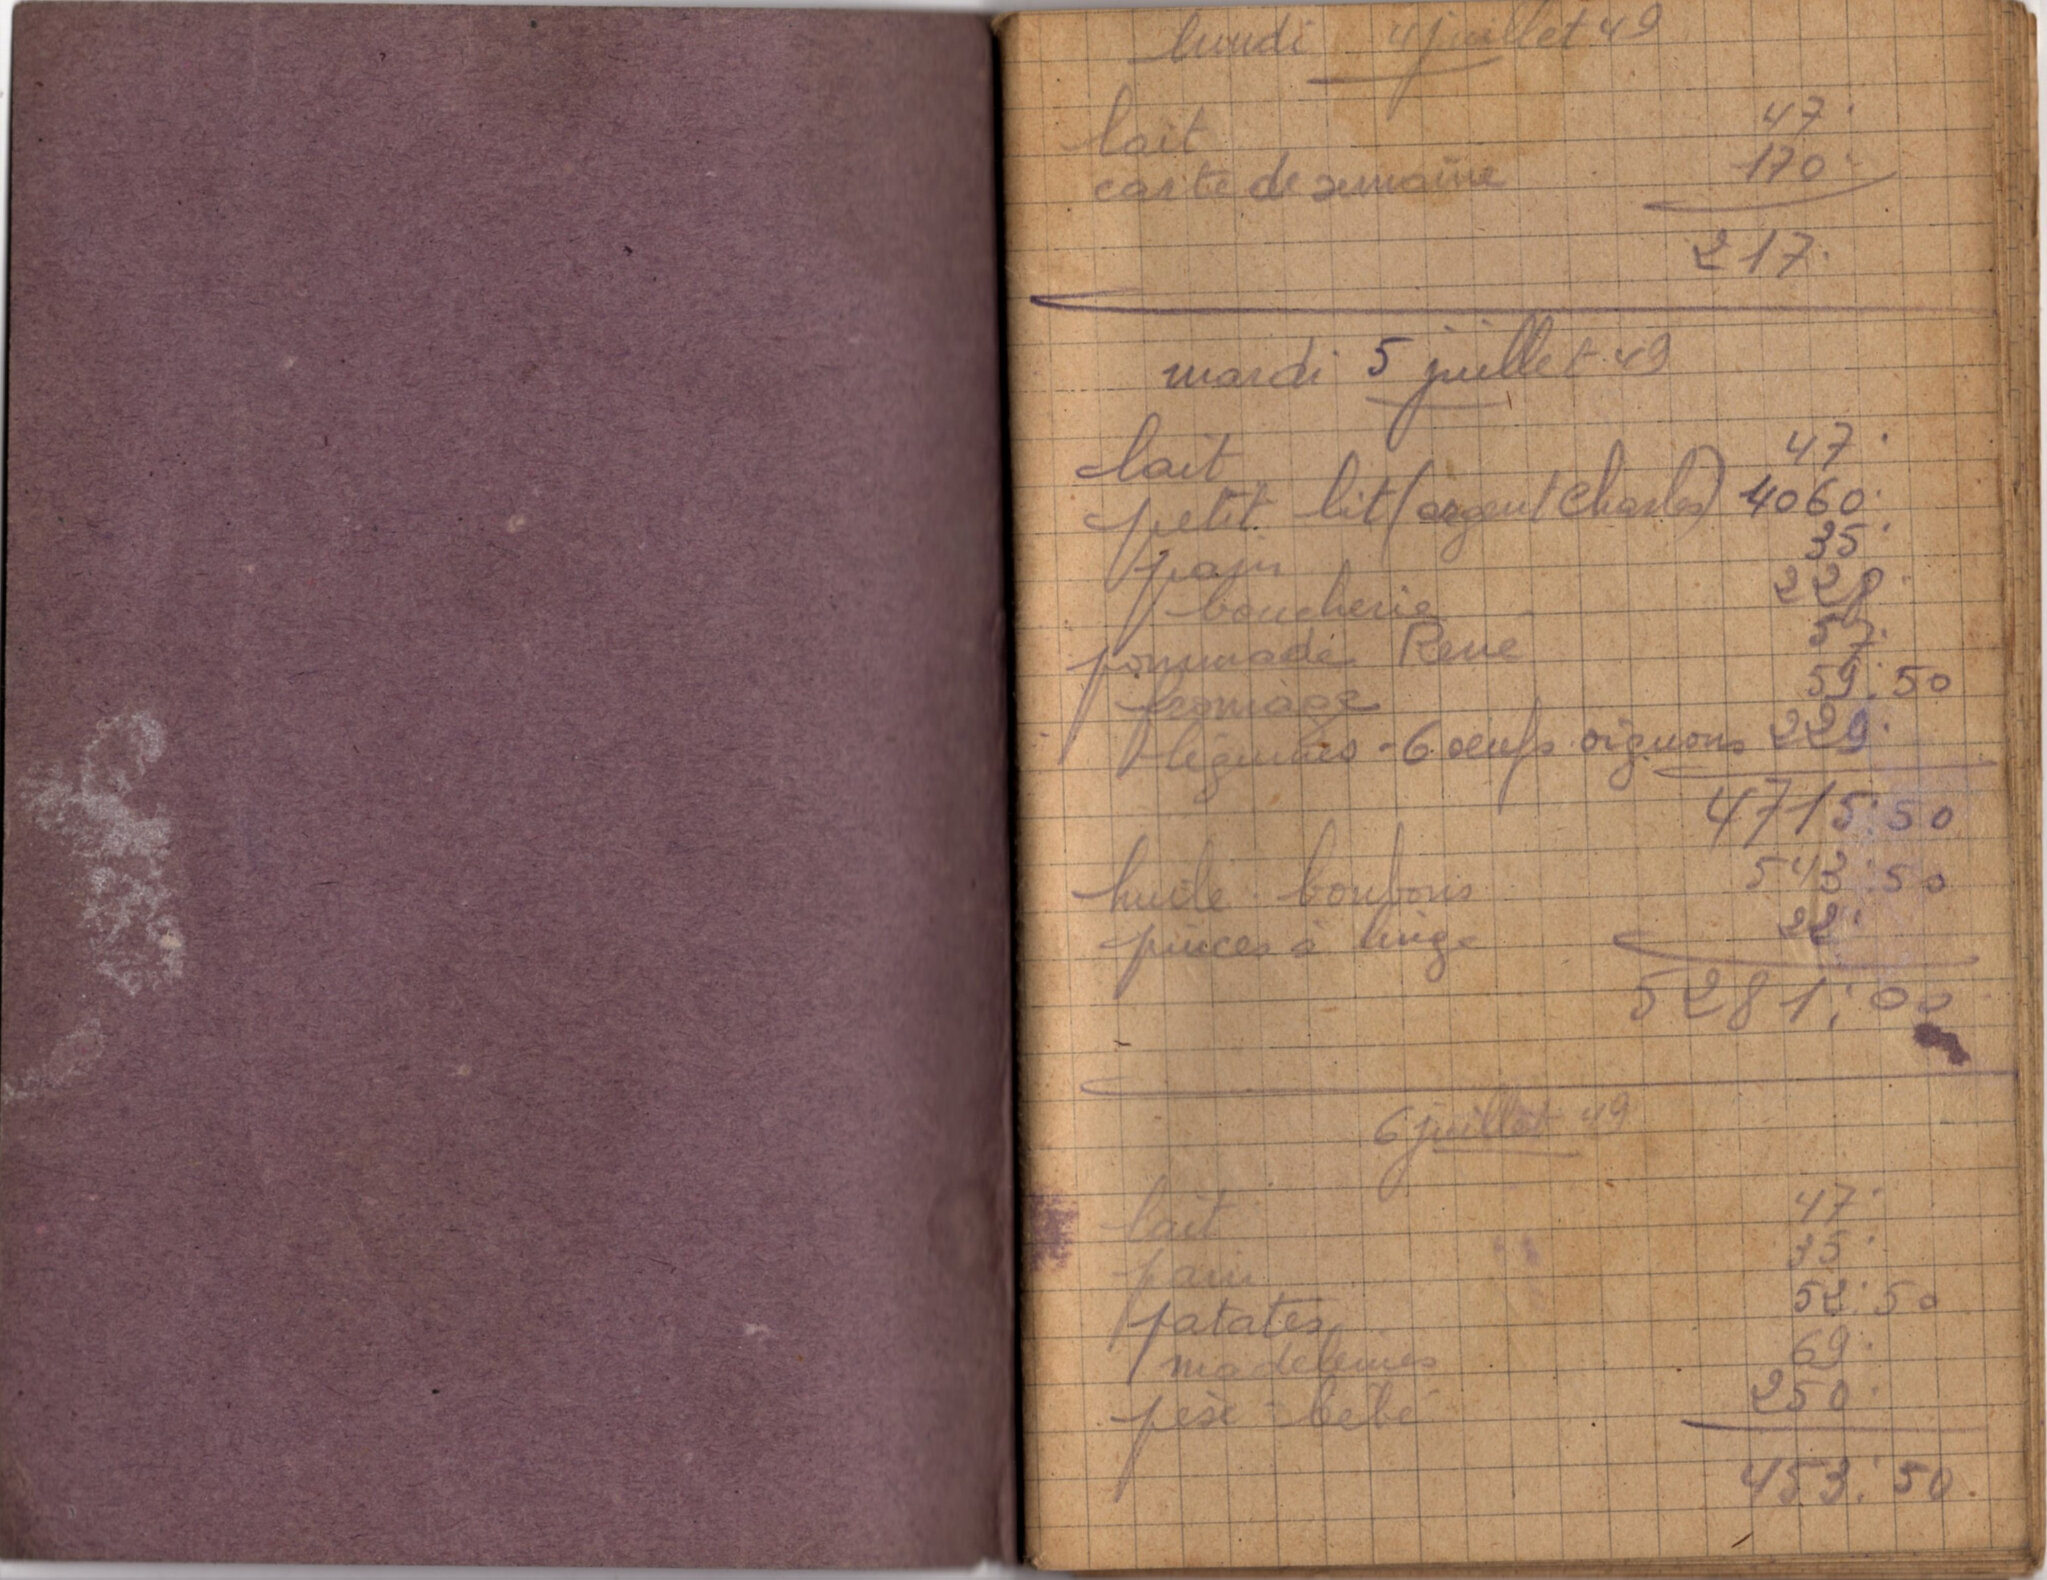 lundi 4 juillet 49
lait 47.
carte de semaine 170.
217.
mardi 5 juillet 49
lait 47.
petit lit (argent Charles) 4060.
pain 35.
boucherie 228.
pommade René 57.
fromage 59.50
légumes - 6 oeufs. oignons 229.
4715.50
huile. bonbons 543.50
pinces à linge 22.
5281.00
6 juillet 49
lait 47.
pain 35.
patates 52.50
madeleines 69.
pèse-bébé 250.
453.50.